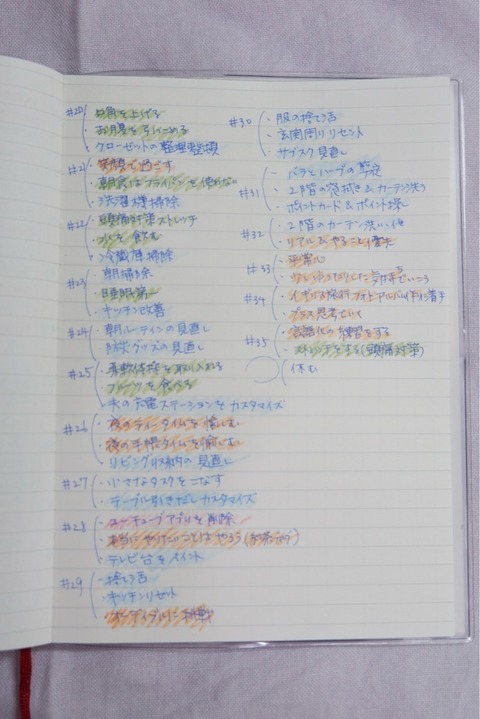 #20 ・口角を上げる
・お腹を引っこめる
・クローゼットの整理整頓
#21 ・笑顔で過ごす
・朝食はフライパンを使わない
・洗濯機掃除
#22 ・頭痛対策ストレッチ
・水を飲む
・冷蔵庫掃除
#23 ・朝掃除
・目標
・キッチン改善
#24 ・朝ルーティンの見直し
・防災グッズの見直し
#25 ・柔軟体操を取り入れる
・フルーツを食べる
・夫の充電ステーションをカスタマイズ
#26 ・夜のティータイムを愉しむ
・夜の手帳タイムを愉しむ
・リビング収納の見直し
#27 ・小さなタスクをこなす
・テーブル引きだしカスタマイズ
#28 ・ユーチューブアプリを削除
・本当にやりたいことはやろう
・テレビ台をペイント
#29 ・捨て活
・キッチンリセット
#30 ・服の捨て活
・玄関周りリセット
・サブスク見直し
#31 ・バラとハーブの剪定
・2階の窓拭き&カーテン洗う
・ポイントカード&ポイント
#32 ・2階のカーテン洗い
・リアル&やること優先
#33 ・平常心
でいこう
#34
・プラス思考でいく
#35 ・言語化の練習をする
・ストレッチをする(頭痛対策)
休む